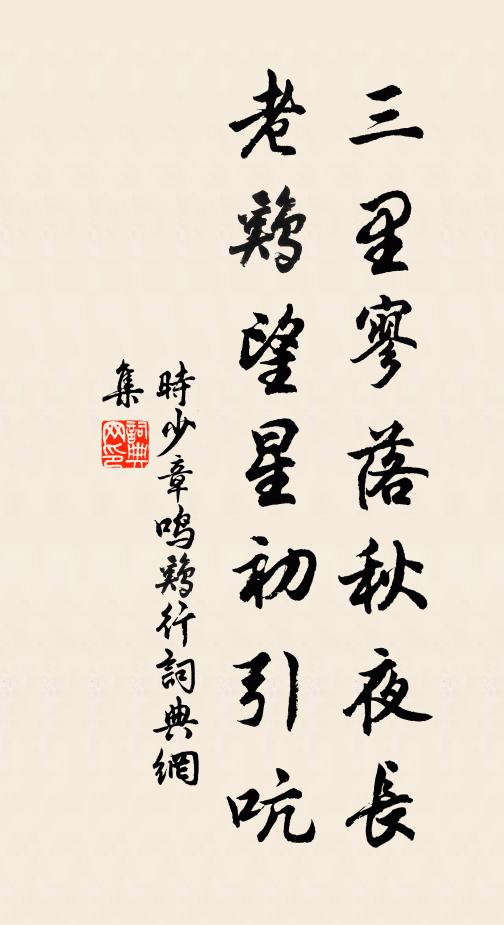 三里寥落秋夜長
老鷄望星初引吭
時少章鳴鷄行詞典網
集
詞典
网印